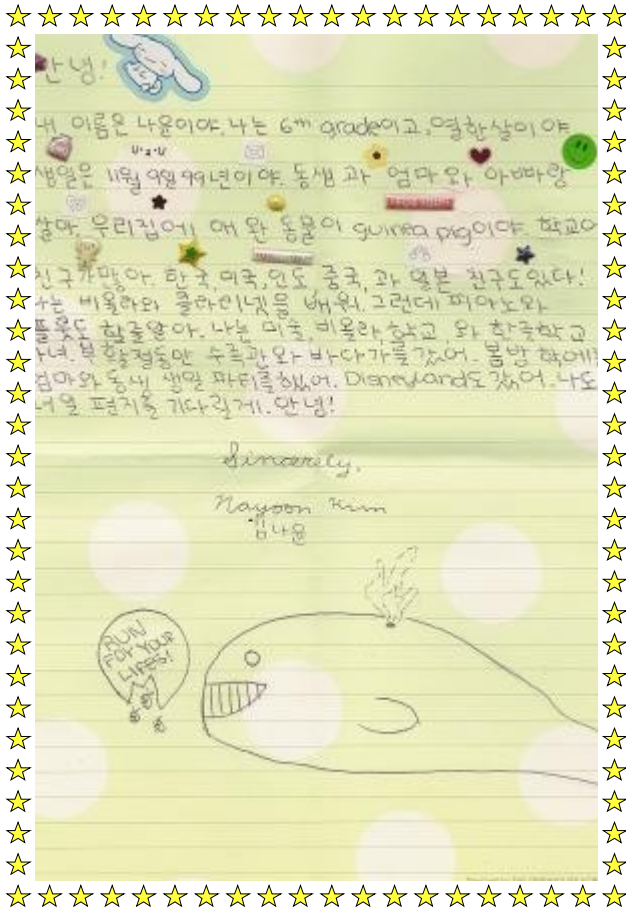 안녕!
내 이름은 나윤이야. 나는 6th grade이고, 열한살이야
생일은 11월 9일 99년이야. 동생과 엄마와 아빠랑
살아. 우리집에 애완 동물이 guinea pig이야. 학교에
친구가많아. 한국, 미국, 인도, 중국, 과 일본 친구도있다!
나는 비올라와 클라리넷을 배워. 그런데 피아노와
플룻도 할줄알아. 나는 미술, 비올라, 학교 와 한글학교
다녀. 수족관와 바다가를갔어. 봄방학에
엄마와 동생 생일 파티를했어. Disneyland도 갔어. 나도
너의 편지를 기다릴게. 안녕!
Sincerely,
Nayoon Kim
김나윤
RUN
FOR YOUR
LIFES!